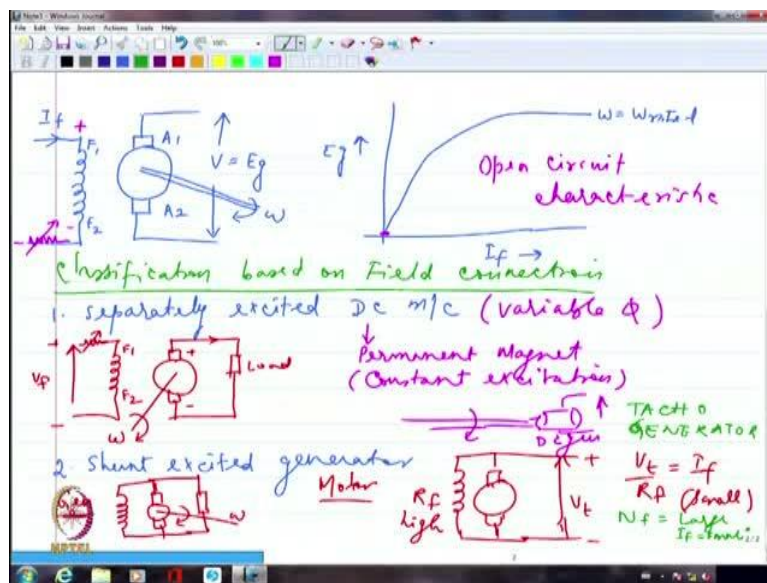 Note1 - Windows Journal
File Edit View Insert Actions Tools Help
100%
B I
If
+
F1
F2
-
A1
A2
V = Eg
ω
Eg ↑
ω = ωrated
Open circuit
characteristic
If →
Classification based on Field connections
1. Separately excited DC m/c (Variable φ)
Vf
F1
F2
+
-
Load
ω
↓
Permanent Magnet
(Constant excitation)
DC gen
TACHO
GENERATOR
2. Shunt excited generator
Gen
ω
Motor
Rf
high
Vt
+
-
Vt/Rf = If
(small)
Nf = Large
If = small
NPTEL